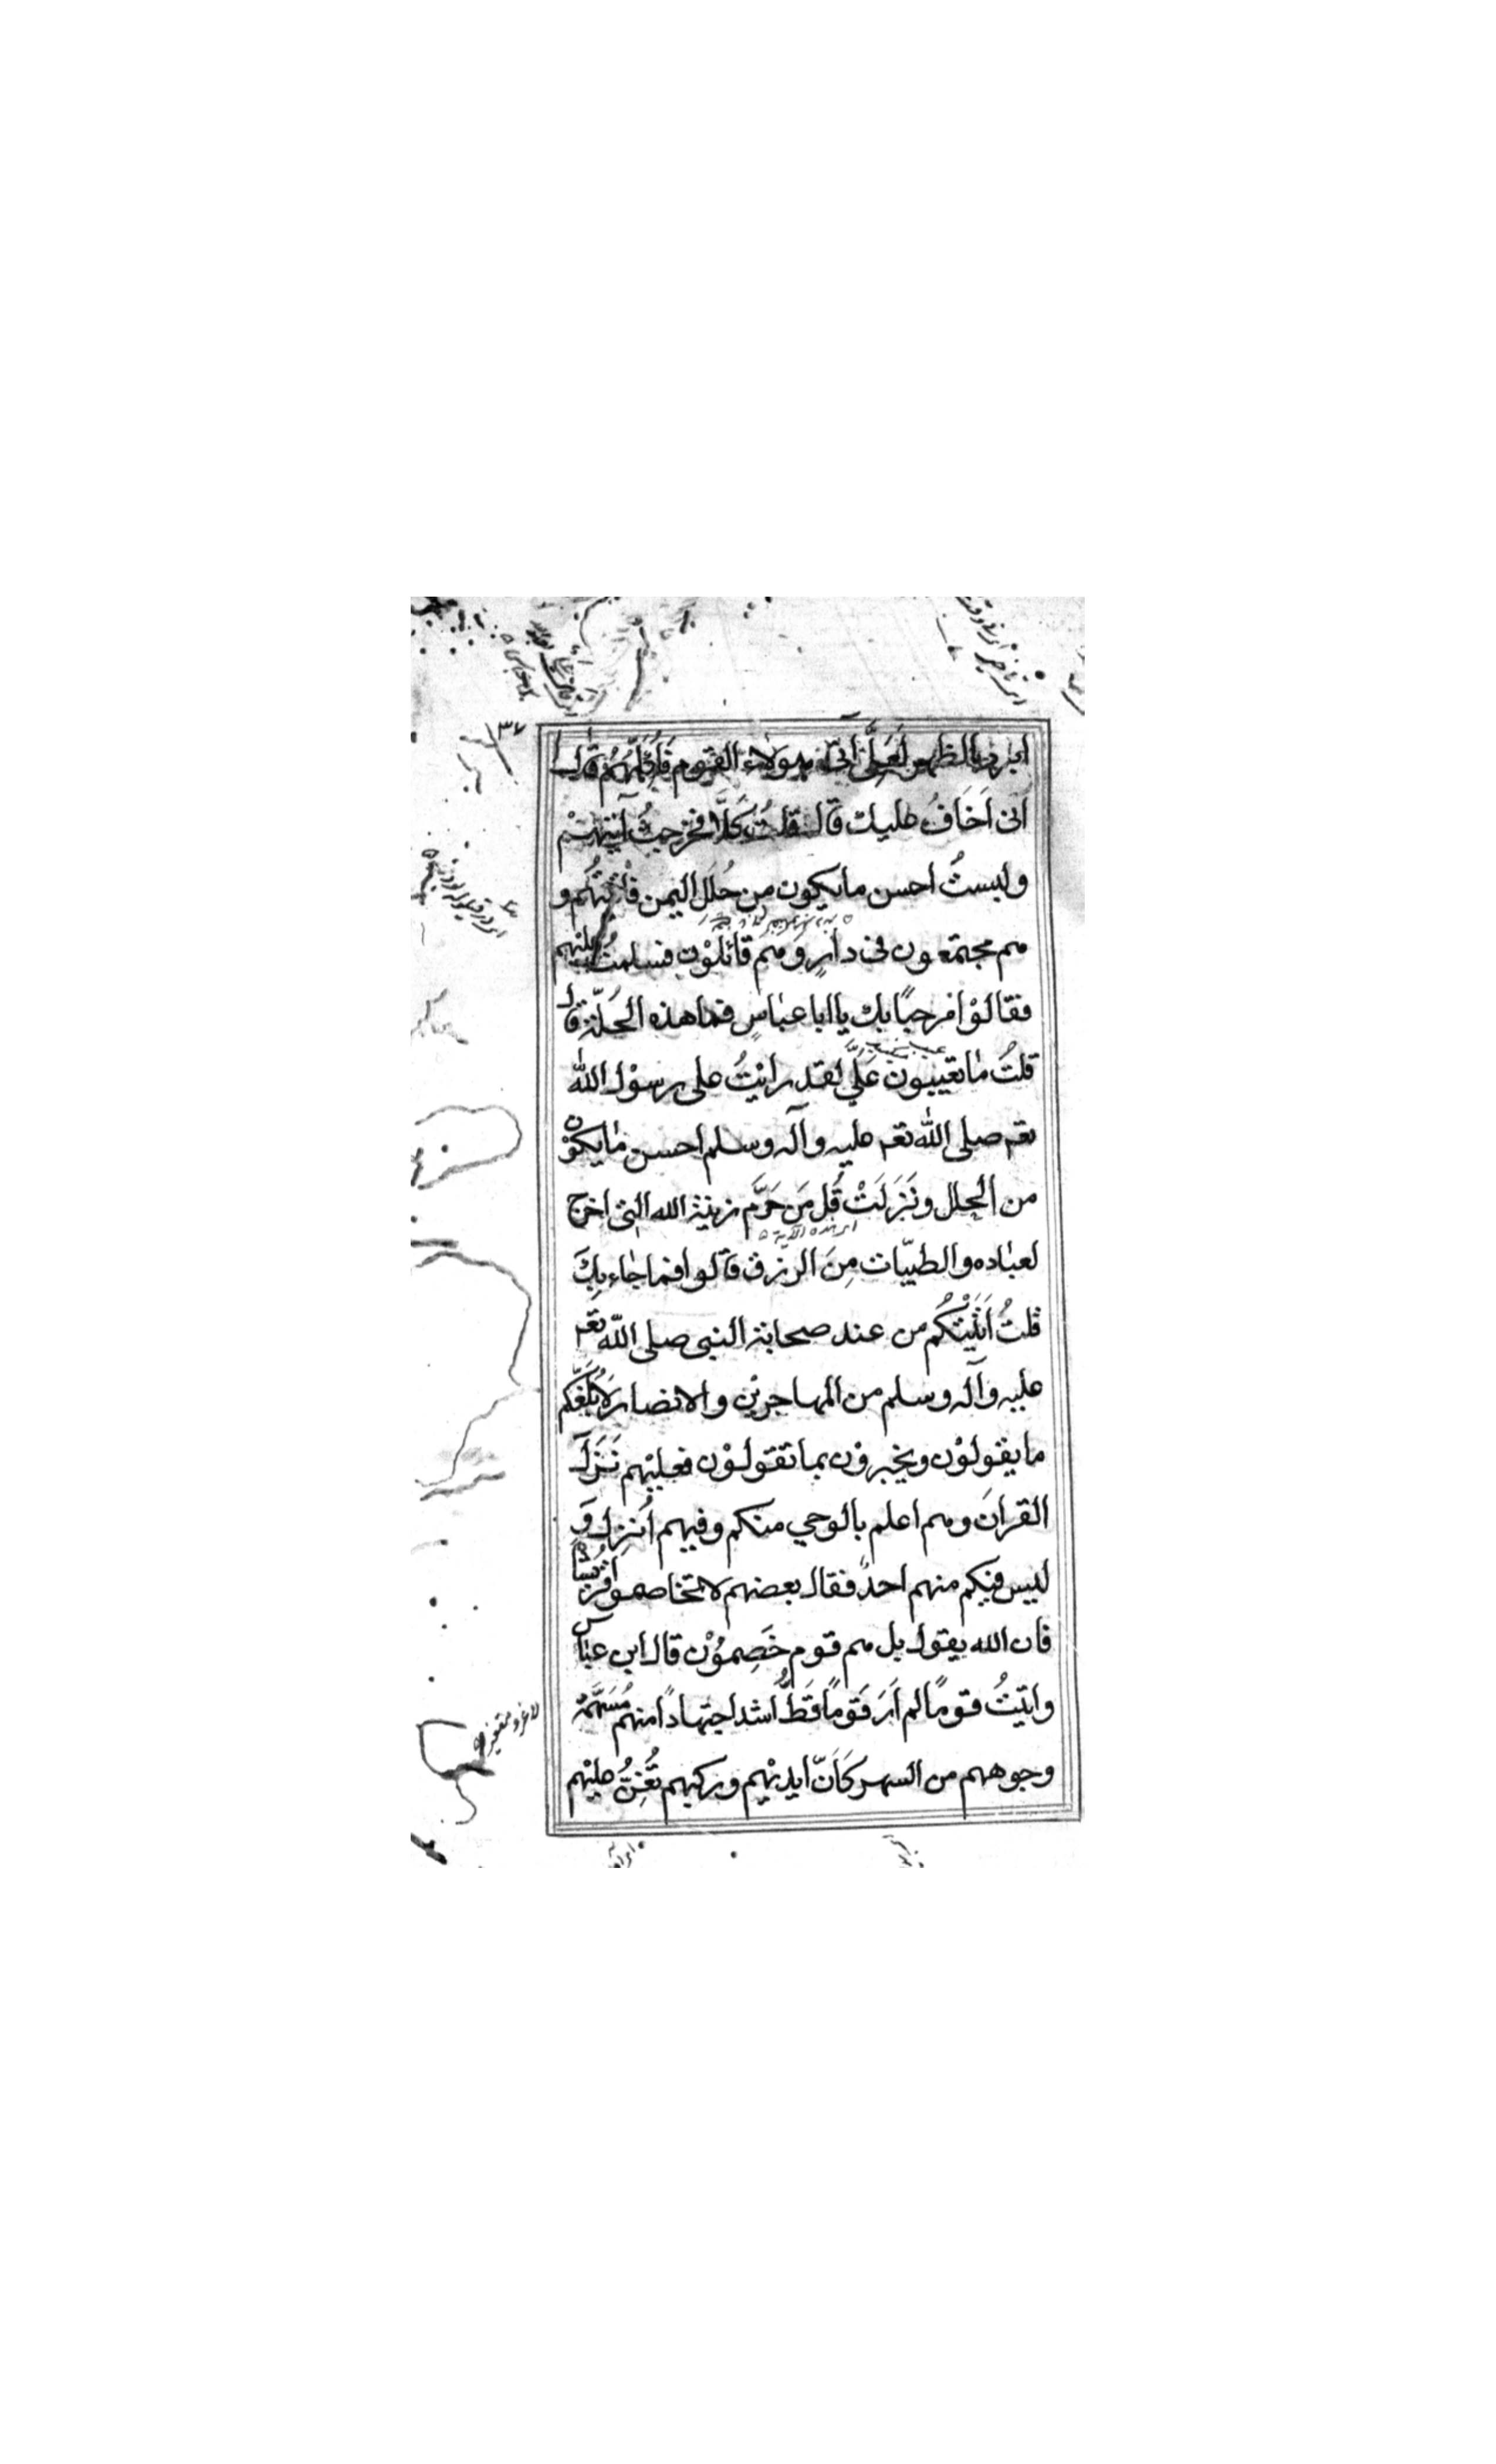 ٣٧
ابرد بالظهر لَعَلِّی آتی هؤلاء القوم فَاُکَلِّمُهُم قال
انی اَخَافُ علیك قال قلتُ کَلَّا فخرجتُ آتیهم
ولبستُ احسن مایکون من حُلَلِ الیمن فاتیتُهُم و
هم مجتمعون فی دارٍ وَهُم قائلُوْن فسلمتُ علیهم
فقالوْا مرحبًا بك یا ابا عباسٍ فما هذه الحُلّة قال
قلتُ ما تعیبون عَلَیَّ لقد رایْتُ علی رسوْل الله
تعم صلی الله تعم علیه وآله وسلم احسن مایکوْن
من الحلل ونَزَلَتْ قُل مَن حَرَّم زینة الله التی اخرج
ای هذه الآیة
لعباده والطیّبات مِنَ الرزق قالوا فما جاء بِكَ
قلتُ اَتَیْتُکُم من عند صحابة النبی صلی الله تعم
علیه وآله وسلم من المهاجریْن والانصار لاُبَلِّغَکم
ما یقولوْن ویخبروْن بما تقولوْن فعلیْهم نَزَلَ
القران وهم اعلم بالوحی منکم وفیهم اُنزِل وَ
لیس فیکم منهم احدٌ فقال بعضهم لا تخاصموا قُرَیْشًا
فان الله یقول بل هم قوم خَصِمُوْن قال ابن عباس
واتیتُ قومًا لم اَرَ قَومًا قَطُّ اشد اجتهادًا منهم مُسَهَّمَة
وجوههم من السهر کَاَنّ ایدیْهم ورکبهم تُثْنَی علیْهم